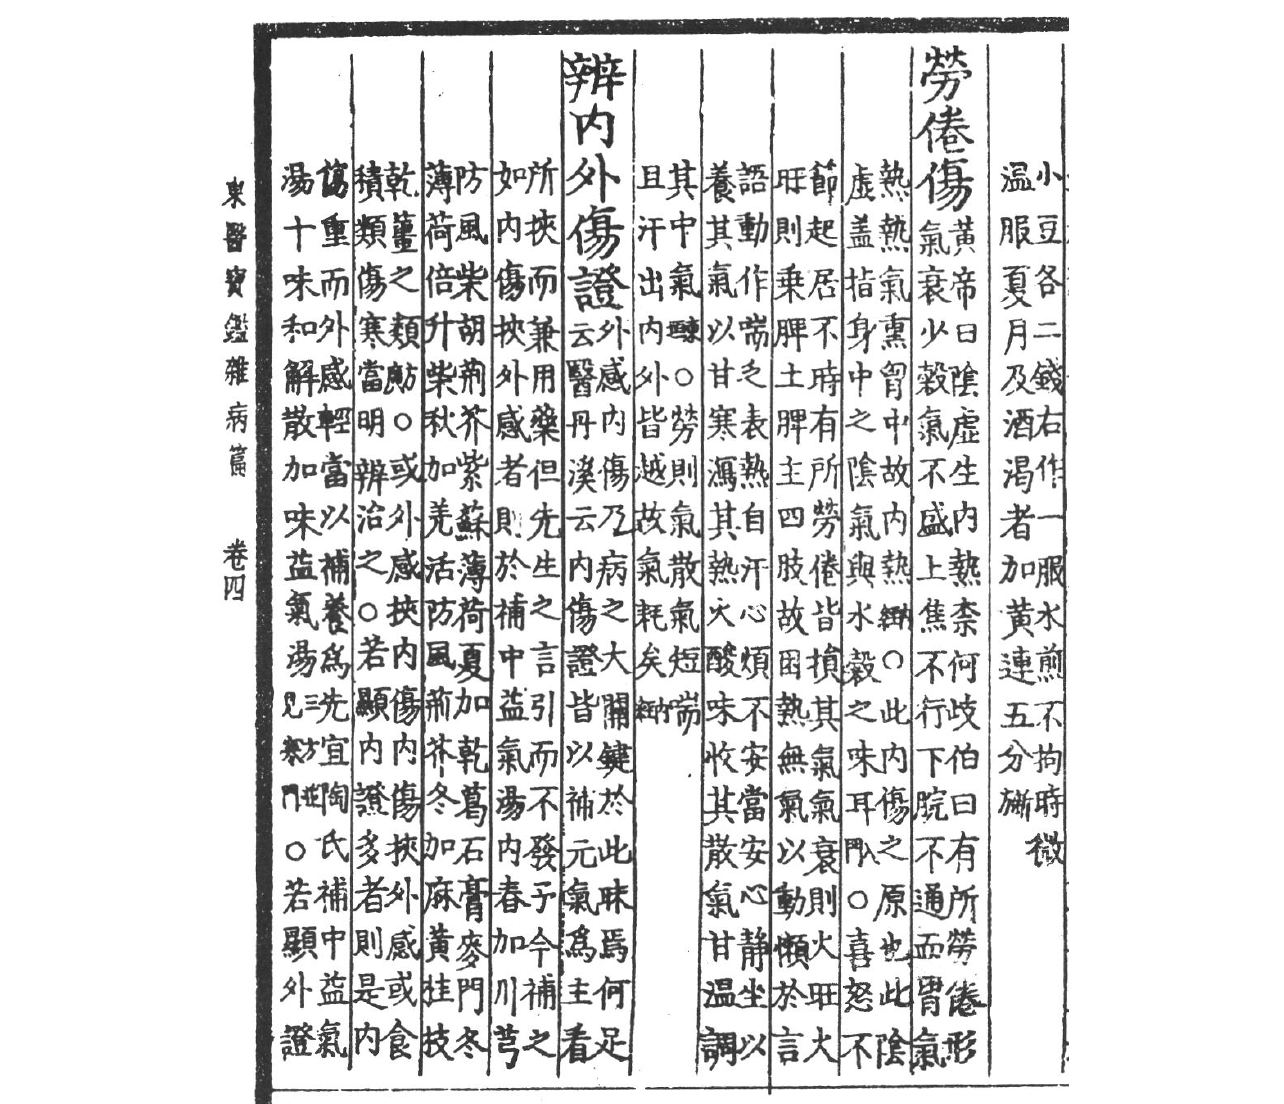 小豆各二錢右作一服水煎不拘時微
温服夏月及酒渴者加黃連五分
勞倦傷
黃帝曰陰虛生內熱柰何歧伯曰有所勞倦形
氣衰少穀氣不盛上焦不行下脘不通而胃氣
熱熱氣熏胷中故內熱〇此內傷之原也此陰
虛盖指身中之陰氣與水穀之味耳〇喜怒不
節起居不時有所勞倦皆損其氣氣衰則火旺火
旺則乗脾土脾主四肢故困熱無氣以動懶於言
語動作喘乏表熱自汗心煩不安當安心静坐以
養其氣以甘寒瀉其熱火酸味收其散氣甘温調
其中氣〇勞則氣散氣短喘
且汗出內外皆越故氣耗矣
辨內外傷證
外感內傷乃病之大關鍵於此昧焉何足
云醫丹溪云內傷證皆以補元氣爲主看
所挾而兼用藥但先生之言引而不發予今補之
如內傷挾外感者則於補中益氣湯內春加川芎
防風柴胡荊芥紫蘇薄荷夏加乾葛石膏麥門冬
薄荷倍升柴秋加羌活防風荊芥冬加麻黃桂枝
乾薑之類〇或外感挾內傷內傷挾外感或食
積類傷寒當明辨治之〇若顯內證多者則是內
傷重而外感輕當以補養爲先宜陶氏補中益氣
湯十味和解散加味益氣湯〇若顯外證
東醫寶鑑雜病篇 卷四